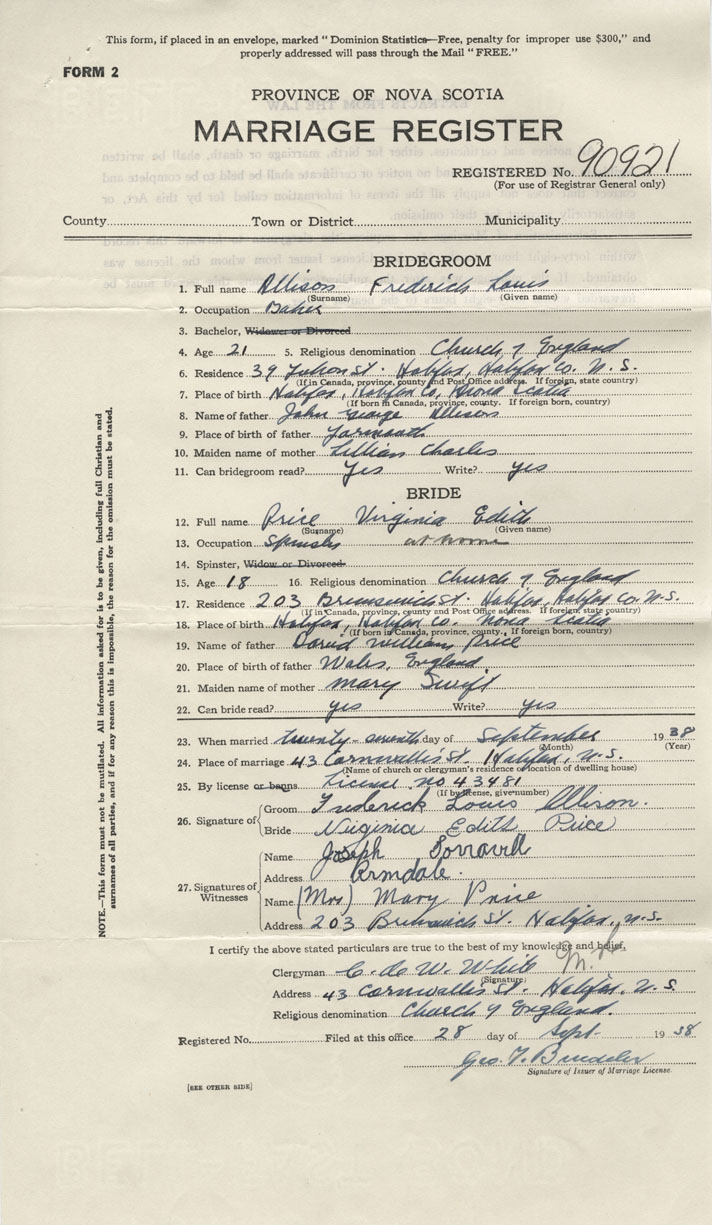 This form, if placed in an envelope, marked "Dominion Statistics—Free, penalty for improper use $300," and
properly addressed will pass through the Mail "FREE."
FORM 2
PROVINCE OF NOVA SCOTIA
MARRIAGE REGISTER
REGISTERED No. 90921
(For use of Registrar General only)
County Town or District Municipality
BRIDEGROOM
1. Full name Allison Frederick Louis
(Surname) (Given name)
2. Occupation Baker
3. Bachelor, Widower or Divorced
4. Age 21 5. Religious denomination Church of England
6. Residence 39 Yukon St. Halifax, Halifax Co. N.S.
(If in Canada, province, county and Post Office address. If foreign, state country)
7. Place of birth Halifax, Halifax Co, Nova Scotia
(If born in Canada, province, county. If foreign born, country)
8. Name of father John George Allison
9. Place of birth of father Yarmouth
10. Maiden name of mother Lillian Charles
11. Can bridegroom read? Yes Write? yes
BRIDE
12. Full name Price Virginia Edith
(Surname) (Given name)
13. Occupation Spinster at home
14. Spinster, Widow or Divorced
15. Age 18 16. Religious denomination Church of England
17. Residence 203 Brunswick St. Halifax, Halifax Co. N.S.
(If in Canada, province, county and Post Office address. If foreign state country)
18. Place of birth Halifax, Halifax Co. Nova Scotia
(If born in Canada, province, county. If foreign born, country)
19. Name of father David William Price
20. Place of birth of father Wales, England
21. Maiden name of mother Mary Swift
22. Can bride read? yes Write? yes
23. When married twenty-seventh day of September 1938
(Month) (Year)
24. Place of marriage 43 Cornwallis St. Halifax, N.S.
(Name of church or clergyman's residence or location of dwelling house)
25. By license or banns License no 43481
(If by license, give number)
26. Signature of Groom Frederick Louis Allison.
Bride Virginia Edith Price
27. Signatures of Witnesses
Name Joseph
Address Armdale.
Name (Mrs) Mary Price
Address 203 Brunswick St. Halifax, N.S.
I certify the above stated particulars are true to the best of my knowledge and belief,
Clergyman C. de W. White
(Signature)
Address 43 Cornwallis St. Halifax, N.S.
Religious denomination Church of England.
Registered No. Filed at this office 28 day of Sept 1938
Geo. T.
Signature of Issuer of Marriage License.
[SEE OTHER SIDE]
NOTE.—This form must not be mutilated. All information asked for is to be given, including full Christian and
surnames of all parties, and if for any reason this is impossible, the reason for the omission must be stated.